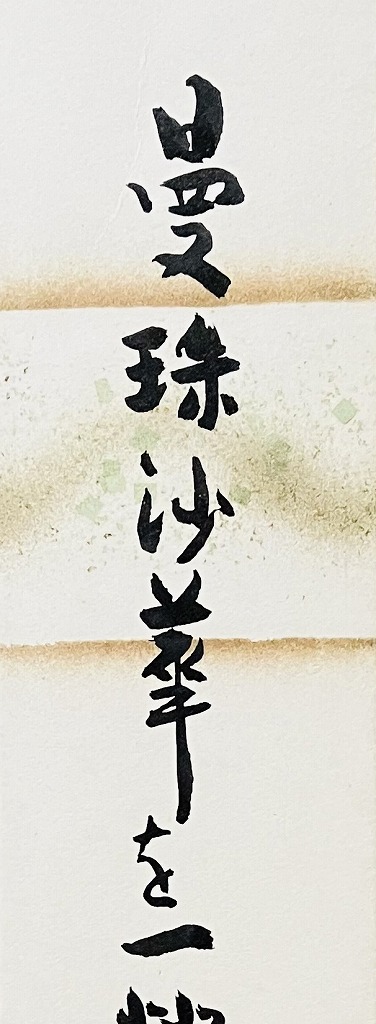 曼珠沙華を一